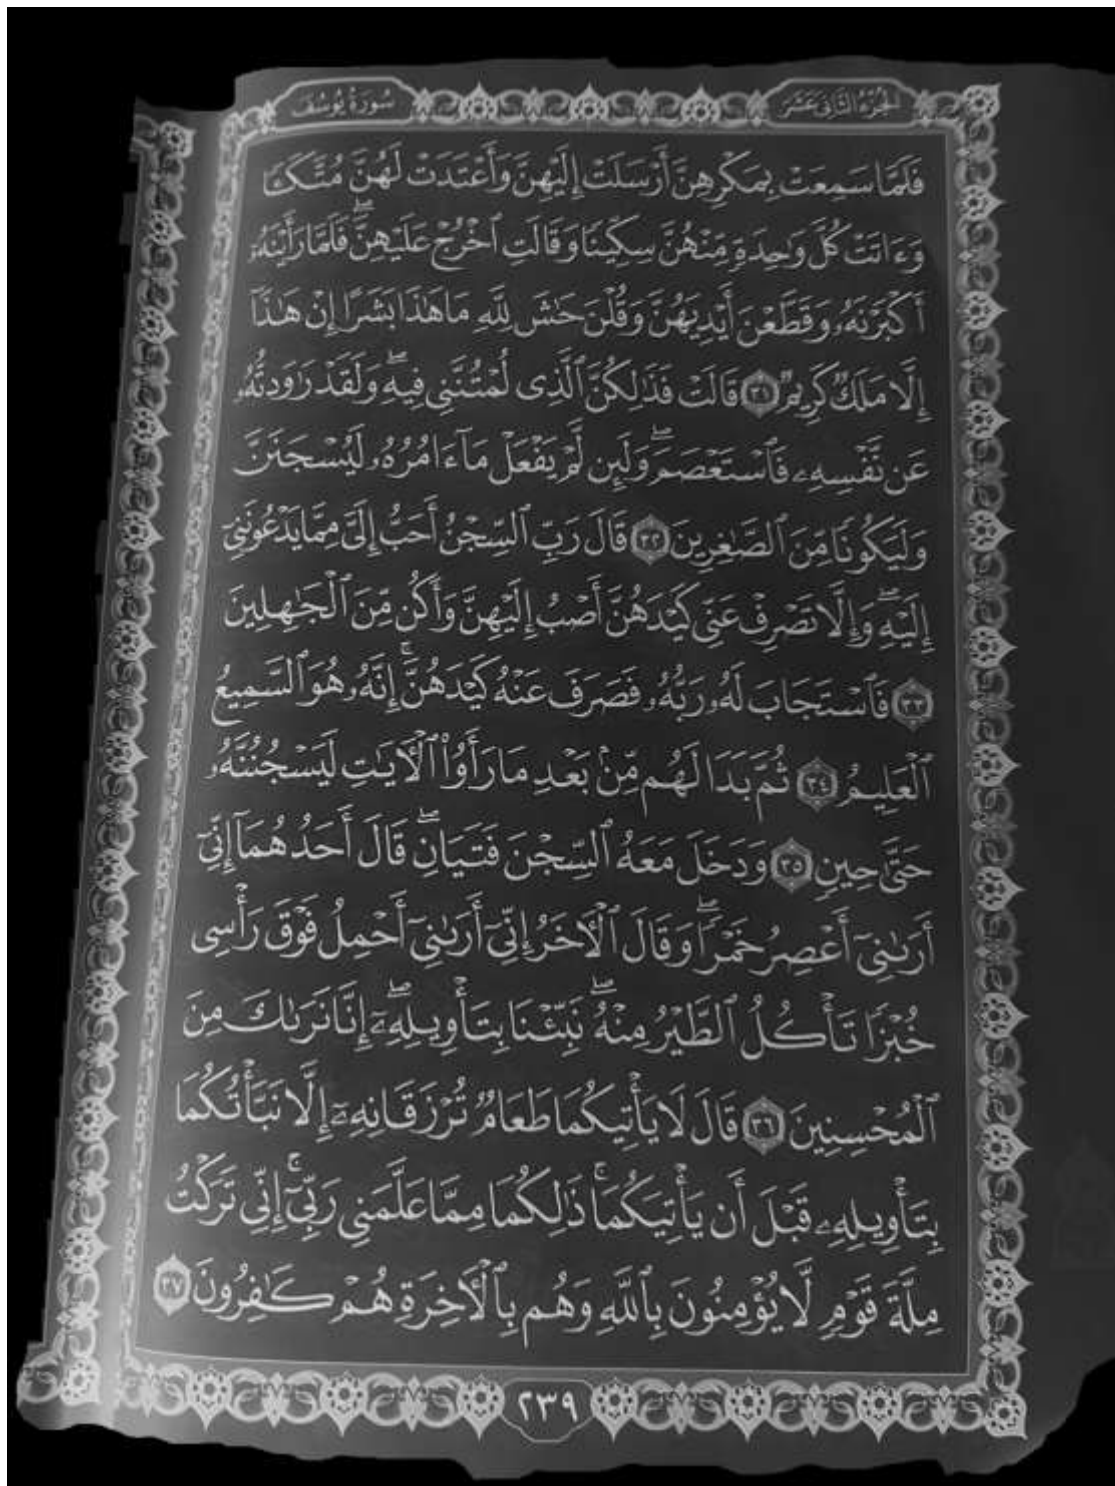 الجزء الثاني عشر
سورة يوسف
فَلَمَّا سَمِعَتْ بِمَكْرِهِنَّ أَرْسَلَتْ إِلَيْهِنَّ وَأَعْتَدَتْ لَهُنَّ مُتَّكَـًٔا
وَءَاتَتْ كُلَّ وَٰحِدَةٍ مِّنْهُنَّ سِكِّينًا وَقَالَتِ ٱخْرُجْ عَلَيْهِنَّ ۖ فَلَمَّا رَأَيْنَهُۥٓ
أَكْبَرْنَهُۥ وَقَطَّعْنَ أَيْدِيَهُنَّ وَقُلْنَ حَٰشَ لِلَّهِ مَا هَٰذَا بَشَرًا إِنْ هَٰذَآ
إِلَّا مَلَكٌ كَرِيمٌ ٣١ قَالَتْ فَذَٰلِكُنَّ ٱلَّذِى لُمْتُنَّنِى فِيهِ ۖ وَلَقَدْ رَٰوَدتُّهُۥ
عَن نَّفْسِهِۦ فَٱسْتَعْصَمَ ۖ وَلَئِن لَّمْ يَفْعَلْ مَآ ءَامُرُهُۥ لَيُسْجَنَنَّ
وَلَيَكُونًا مِّنَ ٱلصَّٰغِرِينَ ٣٢ قَالَ رَبِّ ٱلسِّجْنُ أَحَبُّ إِلَىَّ مِمَّا يَدْعُونَنِىٓ
إِلَيْهِ ۖ وَإِلَّا تَصْرِفْ عَنِّى كَيْدَهُنَّ أَصْبُ إِلَيْهِنَّ وَأَكُن مِّنَ ٱلْجَٰهِلِينَ
٣٣ فَٱسْتَجَابَ لَهُۥ رَبُّهُۥ فَصَرَفَ عَنْهُ كَيْدَهُنَّ ۚ إِنَّهُۥ هُوَ ٱلسَّمِيعُ
ٱلْعَلِيمُ ٣٤ ثُمَّ بَدَا لَهُم مِّنۢ بَعْدِ مَا رَأَوُا۟ ٱلْـَٔايَٰتِ لَيَسْجُنُنَّهُۥ
حَتَّىٰ حِينٍ ٣٥ وَدَخَلَ مَعَهُ ٱلسِّجْنَ فَتَيَانِ ۖ قَالَ أَحَدُهُمَآ إِنِّىٓ
أَرَىٰنِىٓ أَعْصِرُ خَمْرًا ۖ وَقَالَ ٱلْـَٔاخَرُ إِنِّىٓ أَرَىٰنِىٓ أَحْمِلُ فَوْقَ رَأْسِى
خُبْزًا تَأْكُلُ ٱلطَّيْرُ مِنْهُ ۖ نَبِّئْنَا بِتَأْوِيلِهِۦٓ ۖ إِنَّا نَرَىٰكَ مِنَ
ٱلْمُحْسِنِينَ ٣٦ قَالَ لَا يَأْتِيكُمَا طَعَامٌ تُرْزَقَانِهِۦٓ إِلَّا نَبَّأْتُكُمَا
بِتَأْوِيلِهِۦ قَبْلَ أَن يَأْتِيَكُمَا ۚ ذَٰلِكُمَا مِمَّا عَلَّمَنِى رَبِّىٓ ۚ إِنِّى تَرَكْتُ
مِلَّةَ قَوْمٍ لَّا يُؤْمِنُونَ بِٱللَّهِ وَهُم بِٱلْـَٔاخِرَةِ هُمْ كَٰفِرُونَ ٣٧
٢٣٩